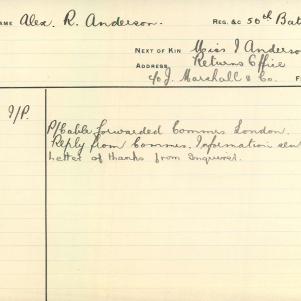 NAME Alex. R. Anderson. REG. &C 50th Bat
NEXT OF KIN Miss I Anderso
ADDRESS Returns Office
c/o J. Marshall & Co. F
I/P. P/Cable forwarded Commrs London.
Reply from Commrs. Information sen
Letter of thanks from Enquirer.